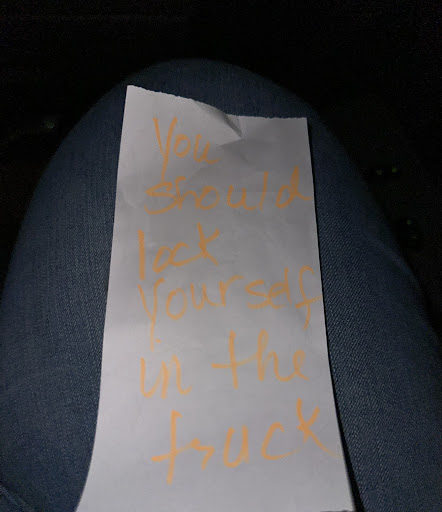 You
should
lock
yourself
in the
truck